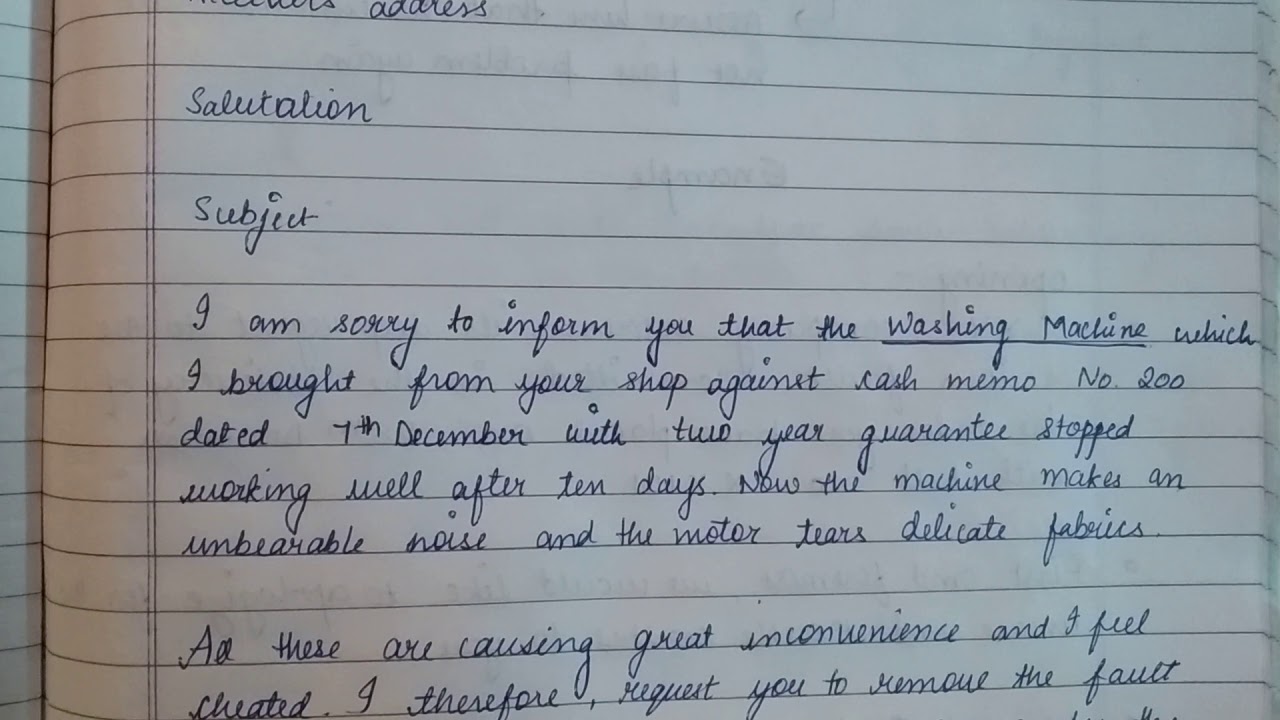 address
Salutation
Subject
I am sorry to inform you that the Washing Machine which
I brought from your shop against cash memo No. 200
dated 7th December with two year guarantee stopped
working well after ten days. Now the machine makes an
unbearable noise and the motor tears delicate fabrics.
these are causing great inconvenience and I feel
cheated. I therefore, request you to remove the fault